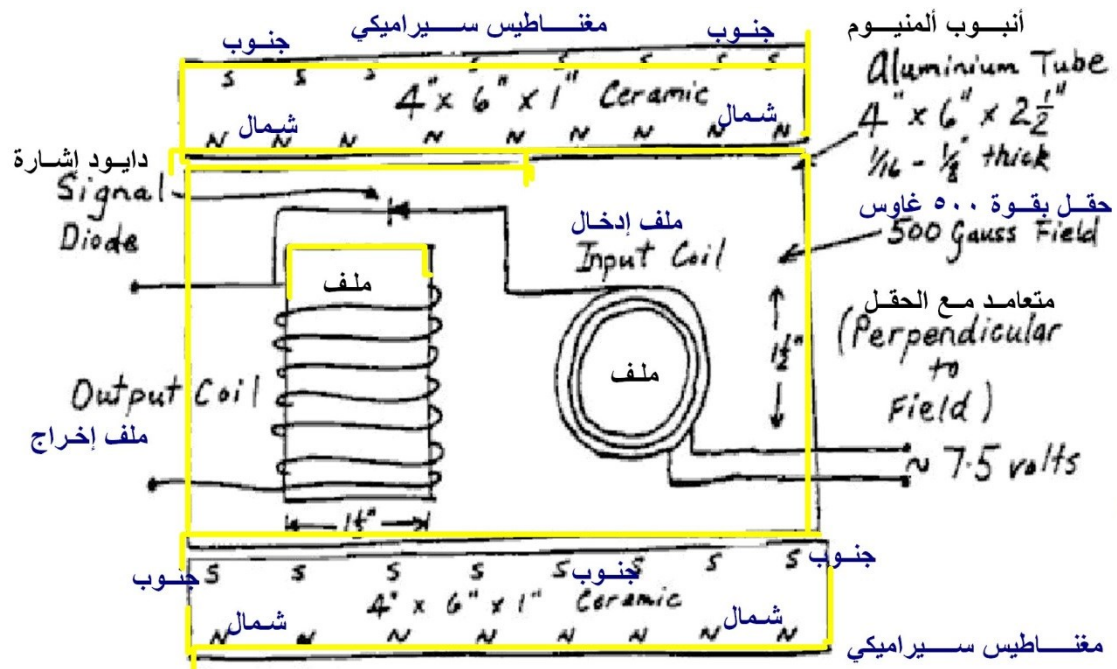 مغناطيس سيراميكي
جنوب
جنوب
S S S S S S S
4" x 6" x 1" Ceramic
شمال
شمال
N N N N N N N N
أنبوب ألمنيوم
Aluminium Tube
4" x 6" x 2½"
1/16 - 1/8" thick
دايود إشارة
Signal
Diode
حقل بقوة ٥٠٠ غاوس
500 Gauss Field
ملف إدخال
Input Coil
ملف
متعامد مع الحقل
(Perpendicular
to
Field)
1½"
ملف
Output Coil
ملف إخراج
~ 7.5 volts
1½"
جنوب
جنوب
جنوب
S S S S S S S
4" x 6" x 1" Ceramic
شمال
شمال
N N N N N N N
مغناطيس سيراميكي